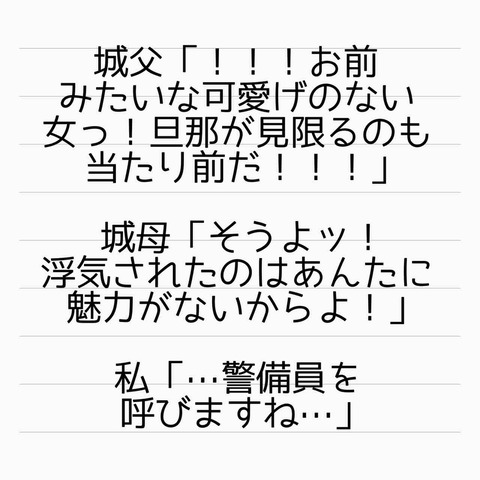 城父「！！！お前
みたいな可愛げのない
女っ！旦那が見限るのも
当たり前だ！！！」
城母「そうよッ！
浮気されたのはあんたに
魅力がないからよ！」
私「…警備員を
呼びますね…」